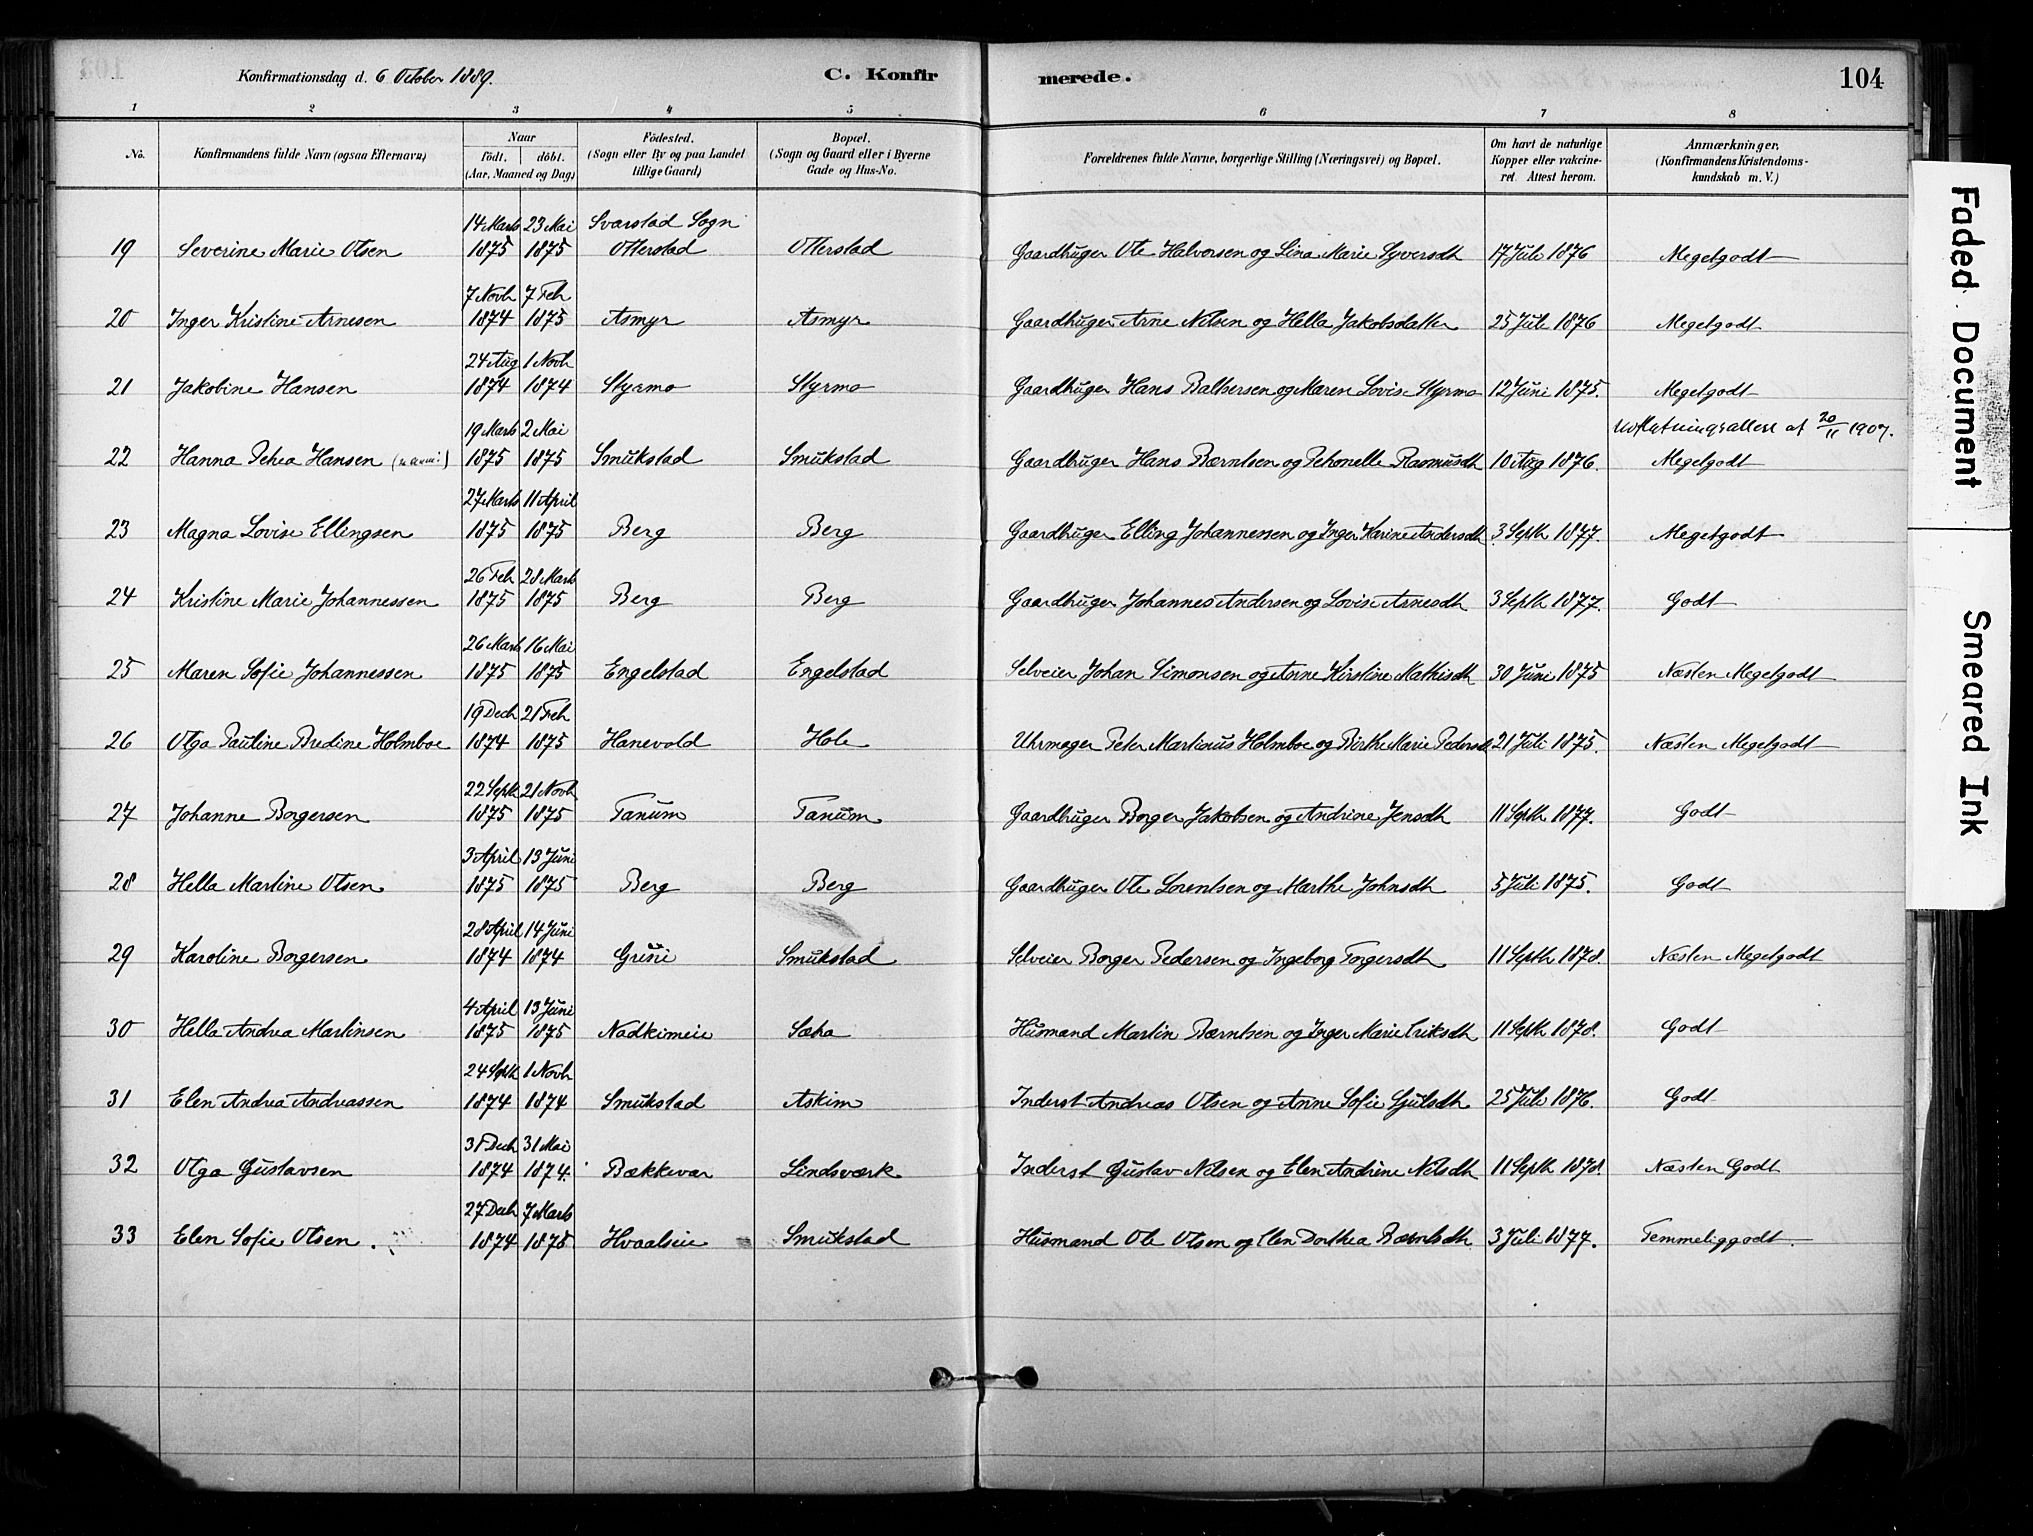 Konfirmationsdag d. 6 October 1889. C. Konfirmerede. 104
1 2 3 4 5 6 7 8
No. Konfirmandens fulde Navn (ogsaa Efternavn) Naar født. døbt. (Aar, Maaned og Dag) Födested. (Sogn eller By og paa Landet tillige Gaard) Bopæl. (Sogn og Gaard eller i Byerne Gade og Hus-No. Forældrenes fulde Navne, borgerlige Stilling (Næringsvei) og Bopæl. Om havt de naturlige Kopper eller vakcineret. Attest herom. Anmærkninger, (Konfirmandens Kristendomskundskab m. V.)
14 Marts 23 Mai Svarstad Sogn
19 Severine Marie Olsen 1875 1875 Otterstad Otterstad Gaardbruger Ole Halvorsen og Lina Marie Syversdtr 17 Juli 1876 Megetgodt
7 Novbr 7 Febr
20 Inger Kristine Arnesen 1874 1875 Asmyr Asmyr Gaardbruger Arne Nilsen og Hella Jakobsdatter 25 Juli 1876 Megetgodt
24 Aug 1 Novbr
21 Jakobine Hansen 1874 1874 Styrmo Styrmo Gaardbruger Hans Baltsersen og Maren Lovise Styrmo 12 Juni 1875. Megetgodt
19 Marts 2 Mai Udflytningsattest af 20/11 1907.
22 Hanna Petrea Hansen 1875 1875 Smukstad Smukstad Gaardbruger Hans Bærntsen og Petronelle Rasmusdtr 10 Aug 1876. Megetgodt
27 Marts 11 April
23 Magna Lovise Ellingsen 1875 1875 Berg Berg Gaardbruger Elling Johannessen og Inger Karine Andersdtr 3 Septbr 1877. Megetgodt
26 Febr 28 Marts
24 Kristine Marie Johannessen 1875 1875 Berg Berg Gaardbruger Johannes Andersen og Lovise Arnesdtr 3 Septbr 1877. Godt
26 Marts 16 Mai
25 Maren Sofie Johannessen 1875 1875 Engelstad Engelstad Selveier Johan Simonsen og Anne Kirstine Mathisdtr 30 Juni 1875 Næsten Megetgodt
19 Decbr 21 Febr
26 Olga Pauline Bredine Holmboe 1874 1875 Hanevold Hole Uhrmager Peter Martinius Holmboe og Birthe Marie Pedersd 21 Juli 1875. Næsten Megetgodt
22 Septbr 21 Novbr
27 Johanne Borgersen 1875 1875 Tanum Tanum Gaardbruger Borger Jakobsen og Andrine Jensdtr 11 Septbr 1877. Godt
3 April 13 Juni
28 Hella Martine Olsen 1875 1875 Berg Berg Gaardbruger Ole Lorentsen og Marthe Johnsdtr 5 Juli 1875. Godt
28 April 14 Juni
29 Karoline Borgersen 1874 1874 Grini Smukstad Selveier Borger Pedersen og Ingeborg Torgersdtr 11 Septbr 1878. Næsten Megetgodt
4 April 13 Juni
30 Hella Andrea Martinsen 1875 1875 Nadkimeie Sætra Husmand Martin Bærntsen og Inger Marie Eriksdtr 11 Septbr 1878. Godt
24 Septbr 1 Novbr
31 Elen Andrea Andreassen 1874 1874 Smukstad Askim Inderst Andreas Olsen og Anne Sofie Sjulsdtr 25 Juli 1876. Godt
31 Decbr 31 Mai
32 Olga Gustavsen 1874 1874. Bækkevar Lindsværk Inderst Gustav Nilsen og Elen Andrine Nilsdtr 11 Septbr 1878 Næsten Godt
27 Decbr 7 Marts
33 Elen Sofie Olsen. 1874 1875 Hvaalseie Smukstad Husmand Ole Olsen og Elen Dorthea Bærntsdtr 3 Juli 1877. Temmeliggodt.
Faded Document
Smeared Ink